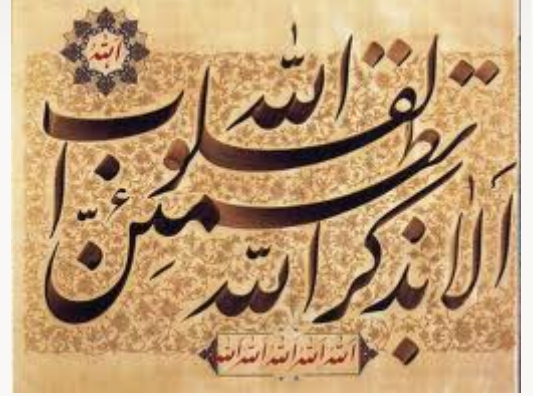 الله
أَلا بذكر الله
تطمئنّ
القلوب
الله
الله الله الله الله الله